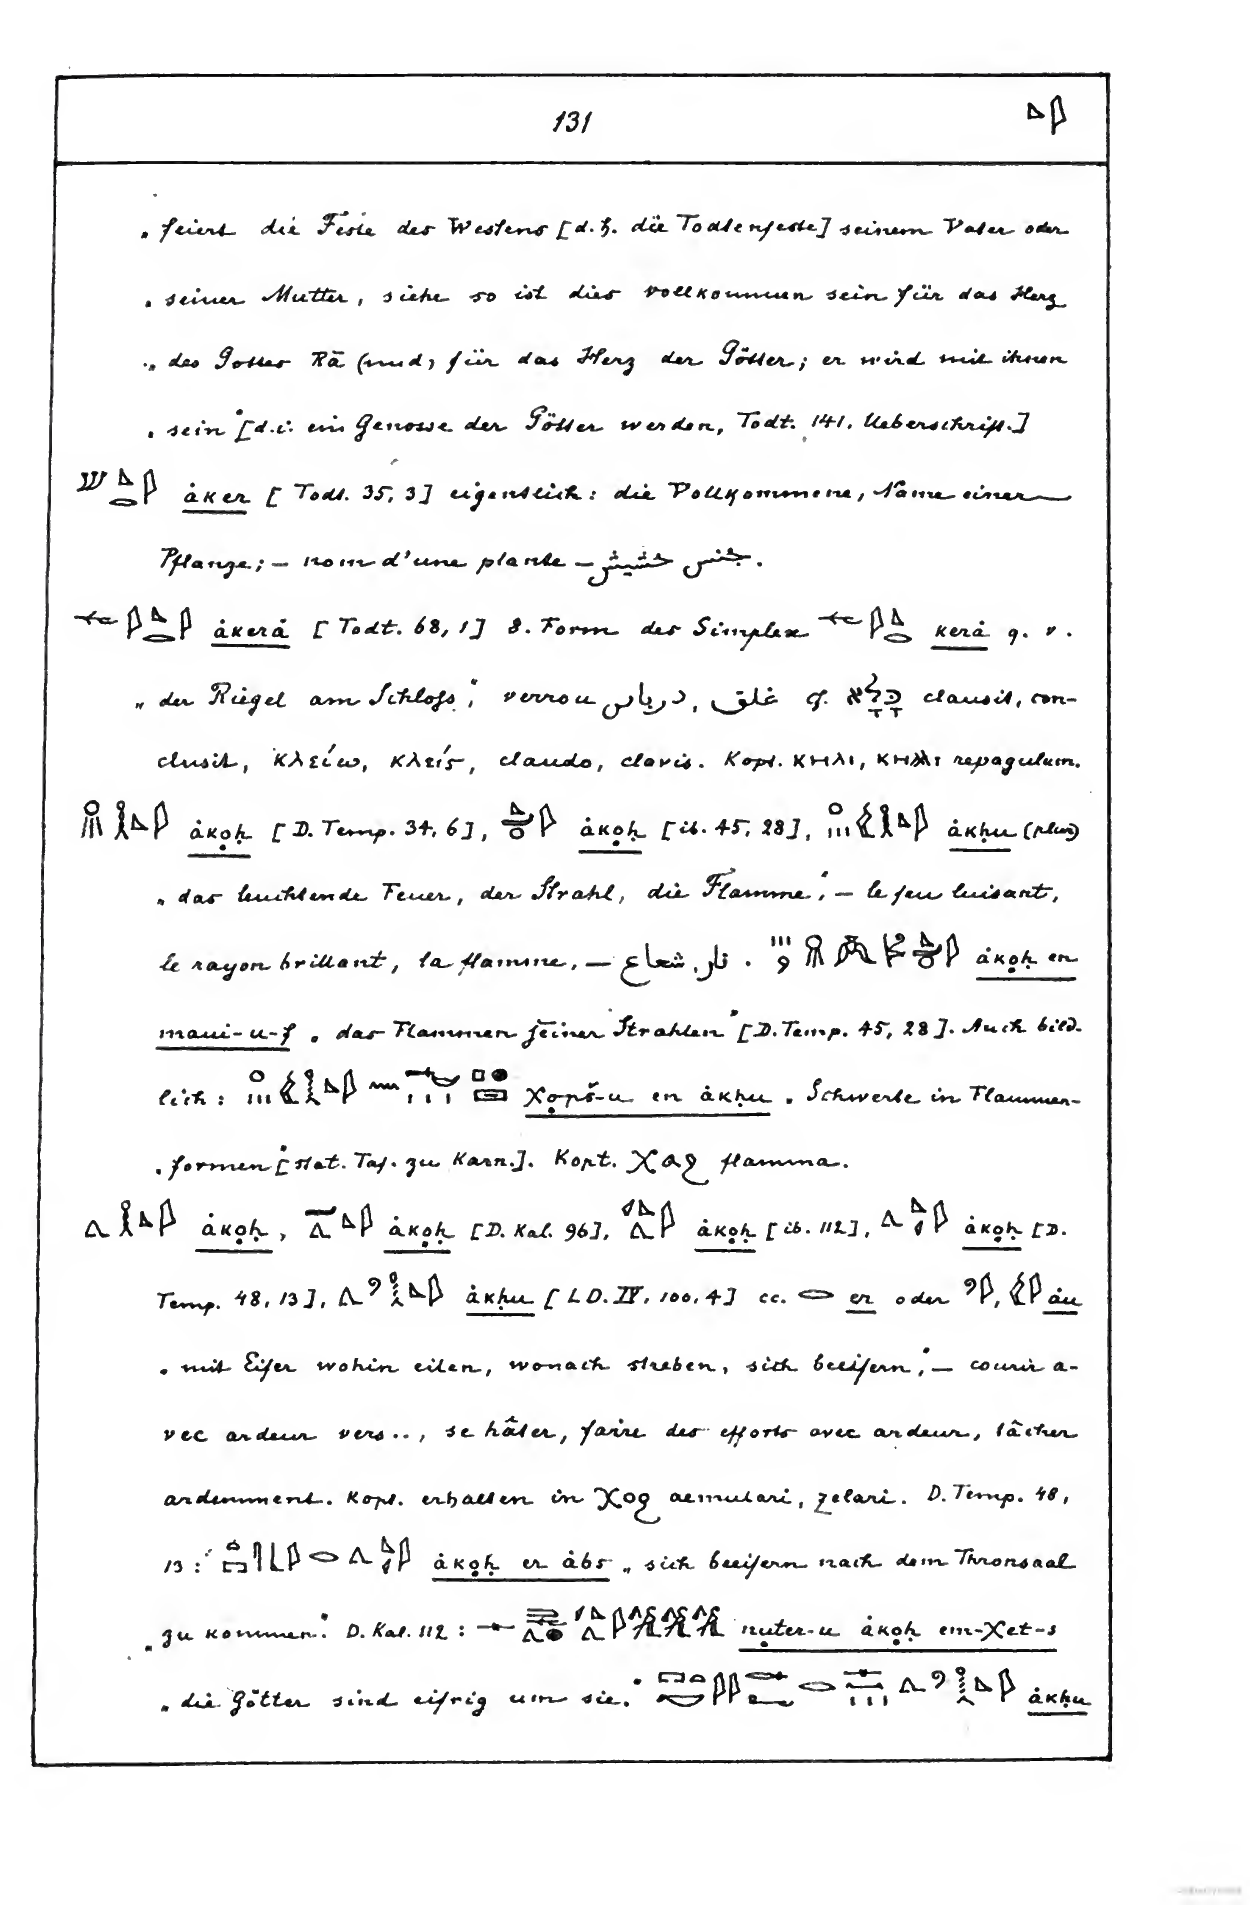 131
„feiert die Feste des Westens [d. h. die Todtenfeste] seinem Vater oder
„seiner Mutter, siehe so ist dies vollkommen sein für das Herz
„des Gottes Rā (und) für das Herz der Götter; er wird mit ihnen
„sein“ [d. i. ein Genosse der Götter werden, Todt. 141. Ueberschrift.]
ȧker [Todt. 35, 3] eigentlich: die Vollkommene, Name einer
Pflanze; – nom d'une plante – جنس حشيش.
ȧkerȧ [Todt. 68, 1] 8. Form des Simplex kerȧ q. v.
„der Riegel am Schloss“, verrou درباس, غلق cf. כָּלָא clausit, con-
clusit, κλείω, κλείς, claudo, clavis. Kopt. ⲕⲏⲗⲓ, ⲕⲏⲗⲗⲓ repagulum.
ȧkọḥ [D. Temp. 34, 6], ȧkọḥ [ib. 45, 28], ȧkḥu (plur)
„das leuchtende Feuer, der Strahl, die Flamme“, – le feu luisant,
le rayon brillant, la flamme, – نار, شعاع. ȧkọḥ en
maui-u-f „das Flammen seiner Strahlen“ [D. Temp. 45, 28]. Auch bild-
lich: χopš-u en ȧkḥu „Schwerte in Flammen-
„formen“ [stat. Taf. zu Karn.]. Kopt. ⲭⲁϩ flamma.
ȧkọḥ, ȧkọḥ [D. Kal. 96], ȧkọḥ [ib. 112], ȧkọḥ [D.
Temp. 48, 13], ȧkḥu [LD. IV, 100, 4] cc. er oder ȧu
„mit Eifer wohin eilen, wonach streben, sich beeifern“, – courir a-
vec ardeur vers.., se hâter, faire des efforts avec ardeur, tâcher
ardemment. Kopt. erhalten in ⲭⲟϩ aemulari, zelari. D. Temp. 48,
13: ȧkọḥ er ȧbs „sich beeifern nach dem Thronsaal
„zu kommen“. D. Kal. 112: nuter-u ȧkọḥ em-χet-s
„die Götter sind eifrig um sie.“ ȧkḥu